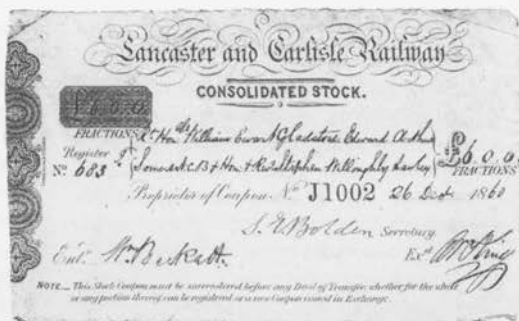 Lancaster and Carlisle Railway
CONSOLIDATED STOCK.
£6.0.0
FRACTIONS
Rt Honble William Ewart Gladstone Edward
Register
No. 683
Somerset C.B & Hon & Revd Stephen Willoughby Lawley
£6.0.0
FRACTIONS
Proprietor of Coupon No J1002 26 Decr 1860
S. E. Bolden Secretary.
Entd. Wm Beckett
Exd
NOTE.— This Stock Coupon must be surrendered before any Deed of Transfer, whether for the whole
or any portion thereof, can be registered or a new Coupon issued in Exchange.